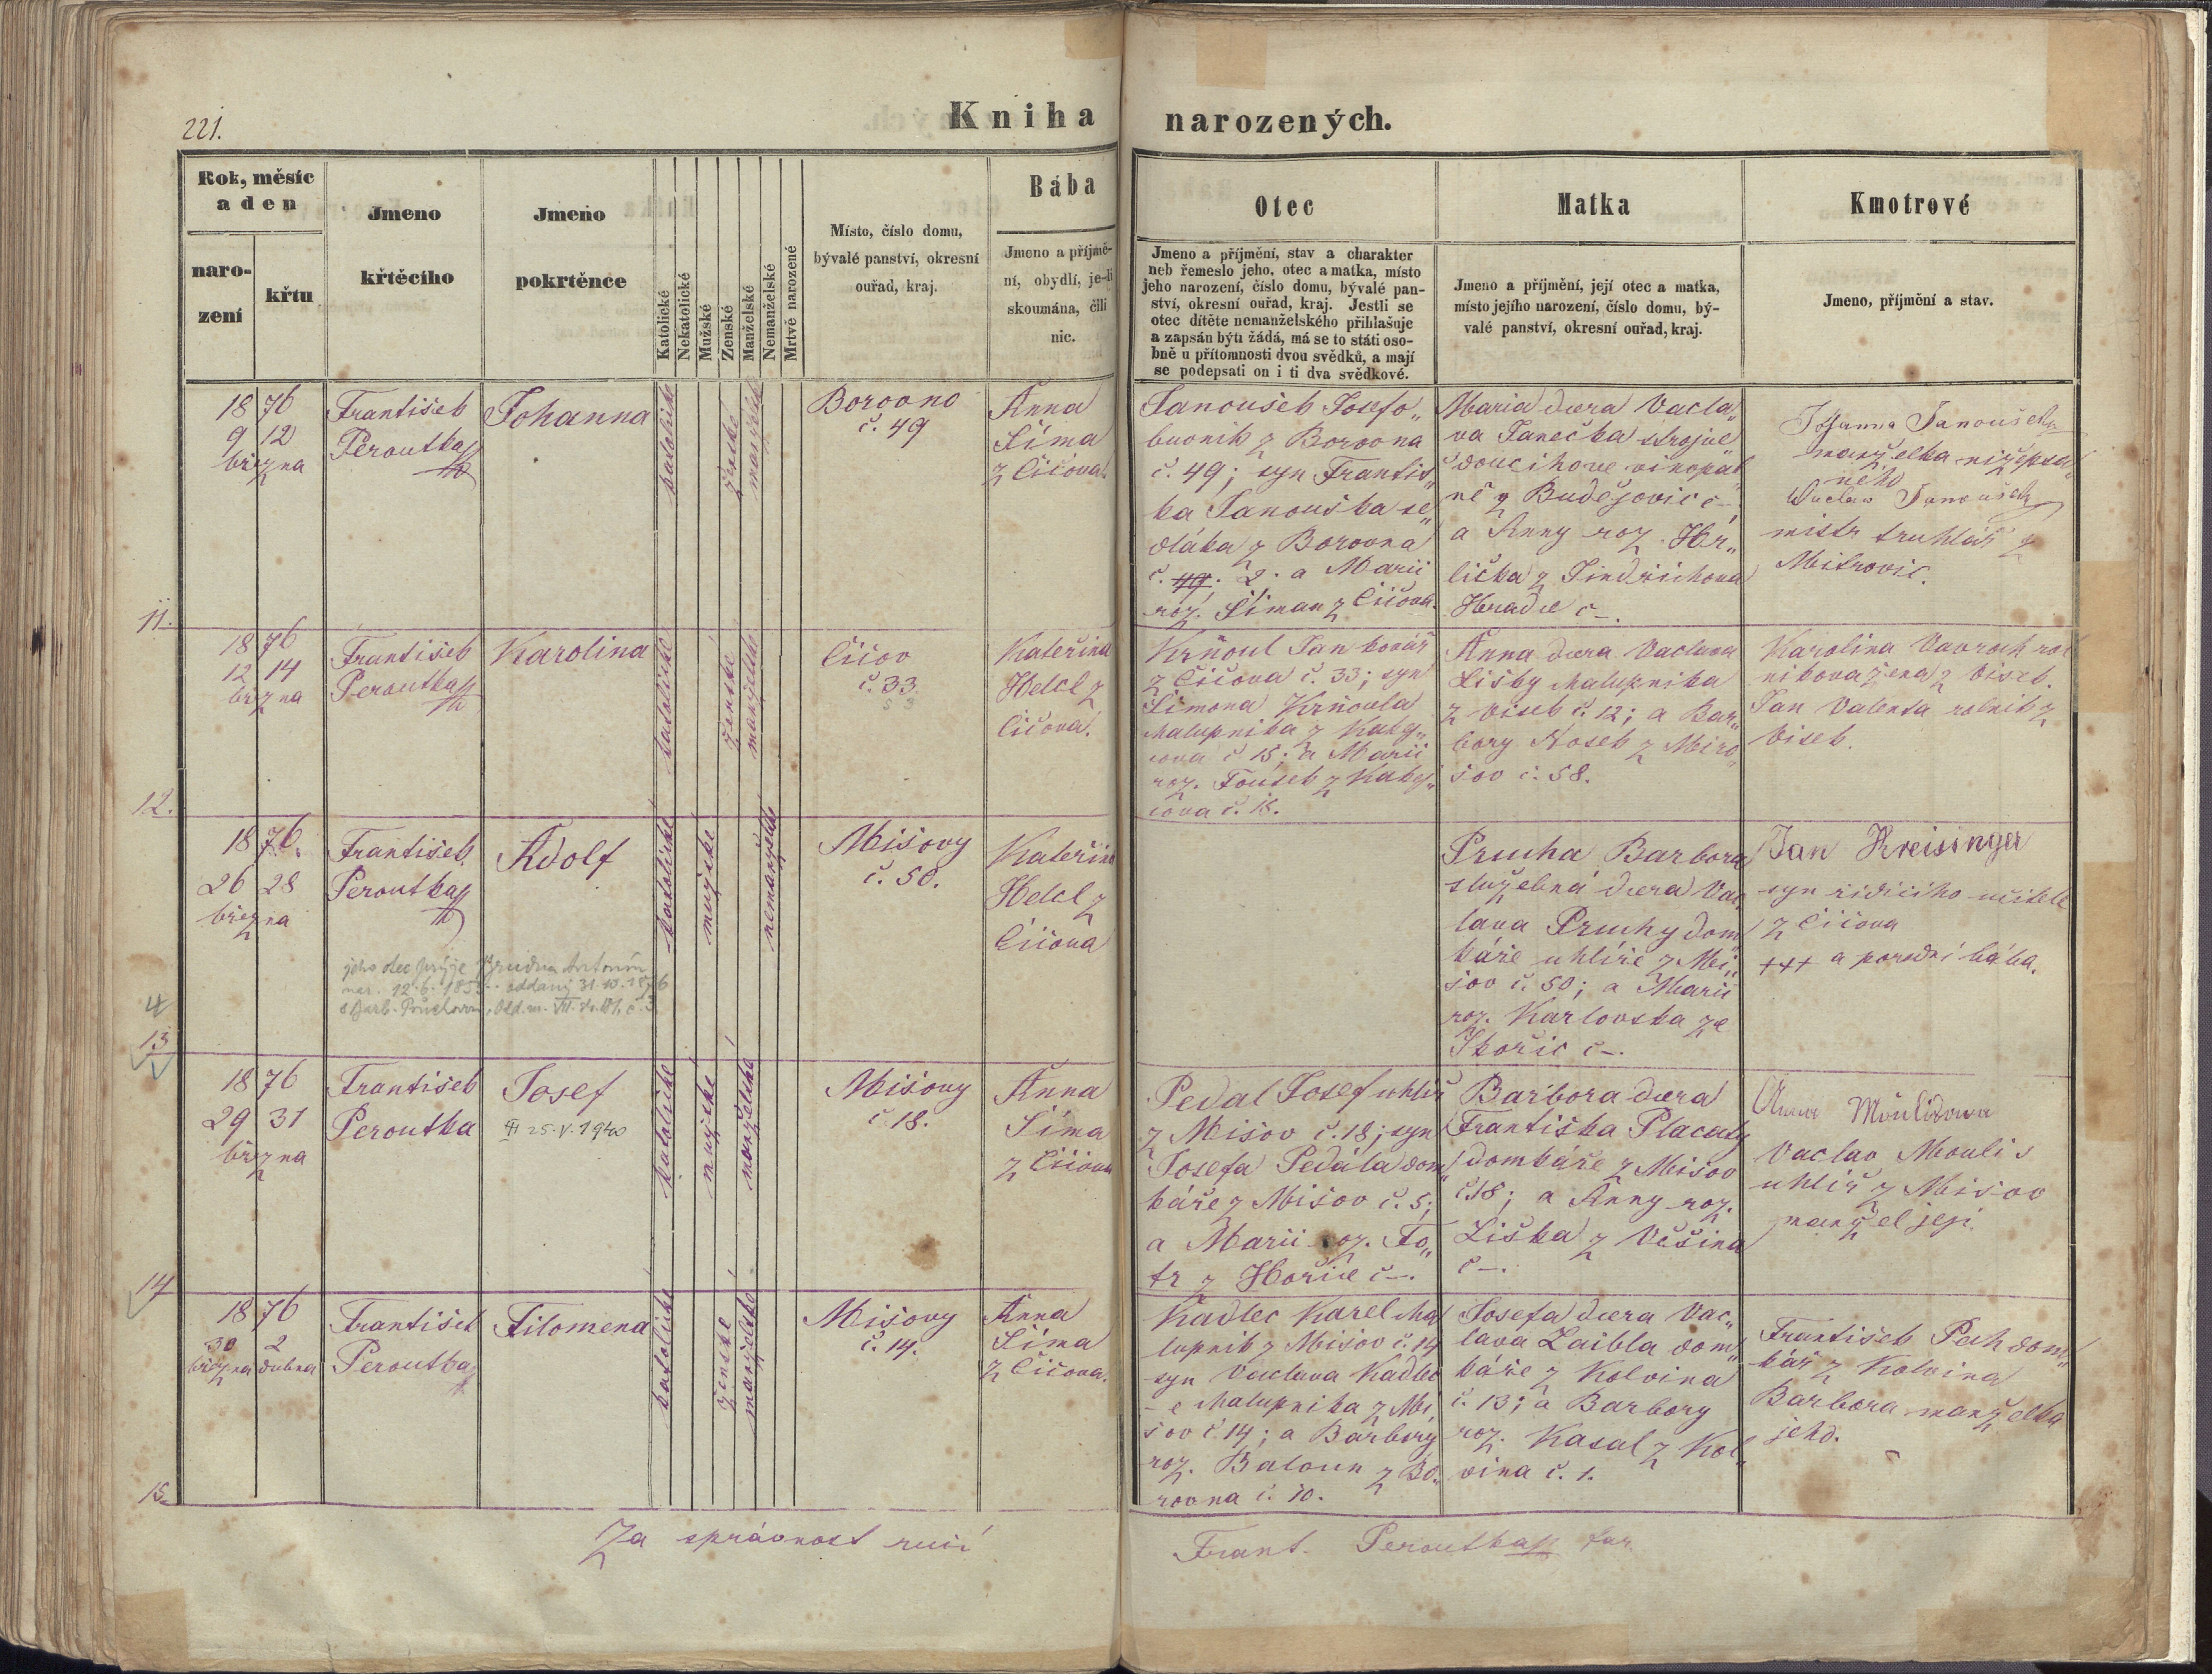 221.
Kniha narozených.
Rok, měsíc
a den
naro-
zení
křtu
Jmeno
křtěcího
Jmeno
pokrtěnce
Katolické
Nekatolické
Mužské
Ženské
Manželské
Nemanželské
Mrtvě narozené
Místo, číslo domu,
bývalé panství, okresní
ouřad, kraj.
Bába
Jmeno a příjmě-
ní, obydlí, je-li
skoumána, čili
nic.
Otec
Jmeno a příjmění, stav a charakter
neb řemeslo jeho, otec a matka, místo
jeho narození, číslo domu, bývalé pan-
ství, okresní ouřad, kraj. Jestli se
otec dítěte nemanželského přihlašuje
a zapsán býti žádá, má se to státi oso-
bně u přítomnosti dvou svědků, a mají
se podepsati on i ti dva svědkové.
Matka
Jmeno a příjmění, její otec a matka,
místo jejího narození, číslo domu, bý-
valé panství, okresní ouřad, kraj.
Kmotrové
Jmeno, příjmění a stav.
11.
1876
9 12
března
František
Peroutka
Johanna
katolické
ženské
manželské
Borovno
č. 49
Anna
Šíma
z Číčova.
Janoušek Josef o„
buvník z Borovna
č. 49; syn Františ„
ka Janouška se„
dláka z Borovna
č. 49. 2. a Marii
roz. Šiman z Číčova.
Maria dcera Václa„
va Janečka strojve
doucího ve vinopal
ně z Budějovic č–.
a Anny roz. Hr„
lička z Jindřichova
Hradce č–.
Johanna Janoušek
manželka nížepsa
ného
Václav Janoušek
mistr truhlář z
Mitrovic.
12.
1876
12 14
března
František
Peroutka
Karolina
katolické
ženské
manželské
Číčov
č. 33
Kateřina
Helcl z
Číčova.
Krňoul Jan kovář
z Číčova č. 33; syn
Šimona Krňoula
chalupníka z Kaky„
cova č 15; a Marii
roz. Toušek z Kakej„
cova č. 15.
Anna dcera Václava
Lišky chalupníka
z Vísek č. 12; a Bar„
bory Nosek z Miro„
šov č. 58.
Karolina Vavroch rol
níkova žena z Vísek.
Jan Valenta rolník z
Vísek.
13
4
1876.
26 28
března
František
Peroutka
Adolf
jeho otec prý je Hrudna Antonín
nar. 12.6.185 oddaný 31.10.1876
s Barb. Průchovou, Odd. m. VII.
katolické
mužské
nemanželské
Míšovy
č. 50.
Kateřina
Helcl z
Číčova
Prucha Barbora
služebná dcera Vác
lava Pruchy dom„
káře uhlíře z Mí„
šov č. 50; a Marii
roz. Karlovska ze
Skořic č–.
Jan Kreisinger
syn řídícího učitele
z Číčova
+++ a porodní bába.
14
1876
29 31
března
František
Peroutka
Josef
25.V.1940
katolické
mužské
manželské
Míšovy
č. 18.
Anna
Šíma
z Číčova
Pedal Josef uhlíř
z Míšov č. 18; syn
Josefa Pedála dom„
káře z Míšov č. 5;
a Marii roz. Fo„
tr z Hořic č–.
Barbora dcera
Františka Placatý
domkáře z Míšov
č 18; a Anny roz.
Liška z Věšína
č–.
Anna Moulisova
Václav Moulis
uhlíř z Míšov
manžel její.
15.
1876
30 2
března dubna
František
Peroutka
Filomena
katolické
ženské
manželské
Míšovy
č. 14.
Anna
Šíma
z Číčova.
Kadlec Karel cha
lupník z Míšov č. 14
syn Václava Kadlec
–e chalupníka z Mí„
šov č 14; a Barbory
roz. Baloun z Bo„
rovna č. 10.
Josefa dcera Vác„
lava Laibla dom„
káře z Kolvína
č. 13; a Barbory
roz. Kasal z Kol„
vína č. 1.
František Pech dom„
kář z Kolvína
Barbora manželka
jeho.
Za správnost ručí
Frant. Peroutka far.